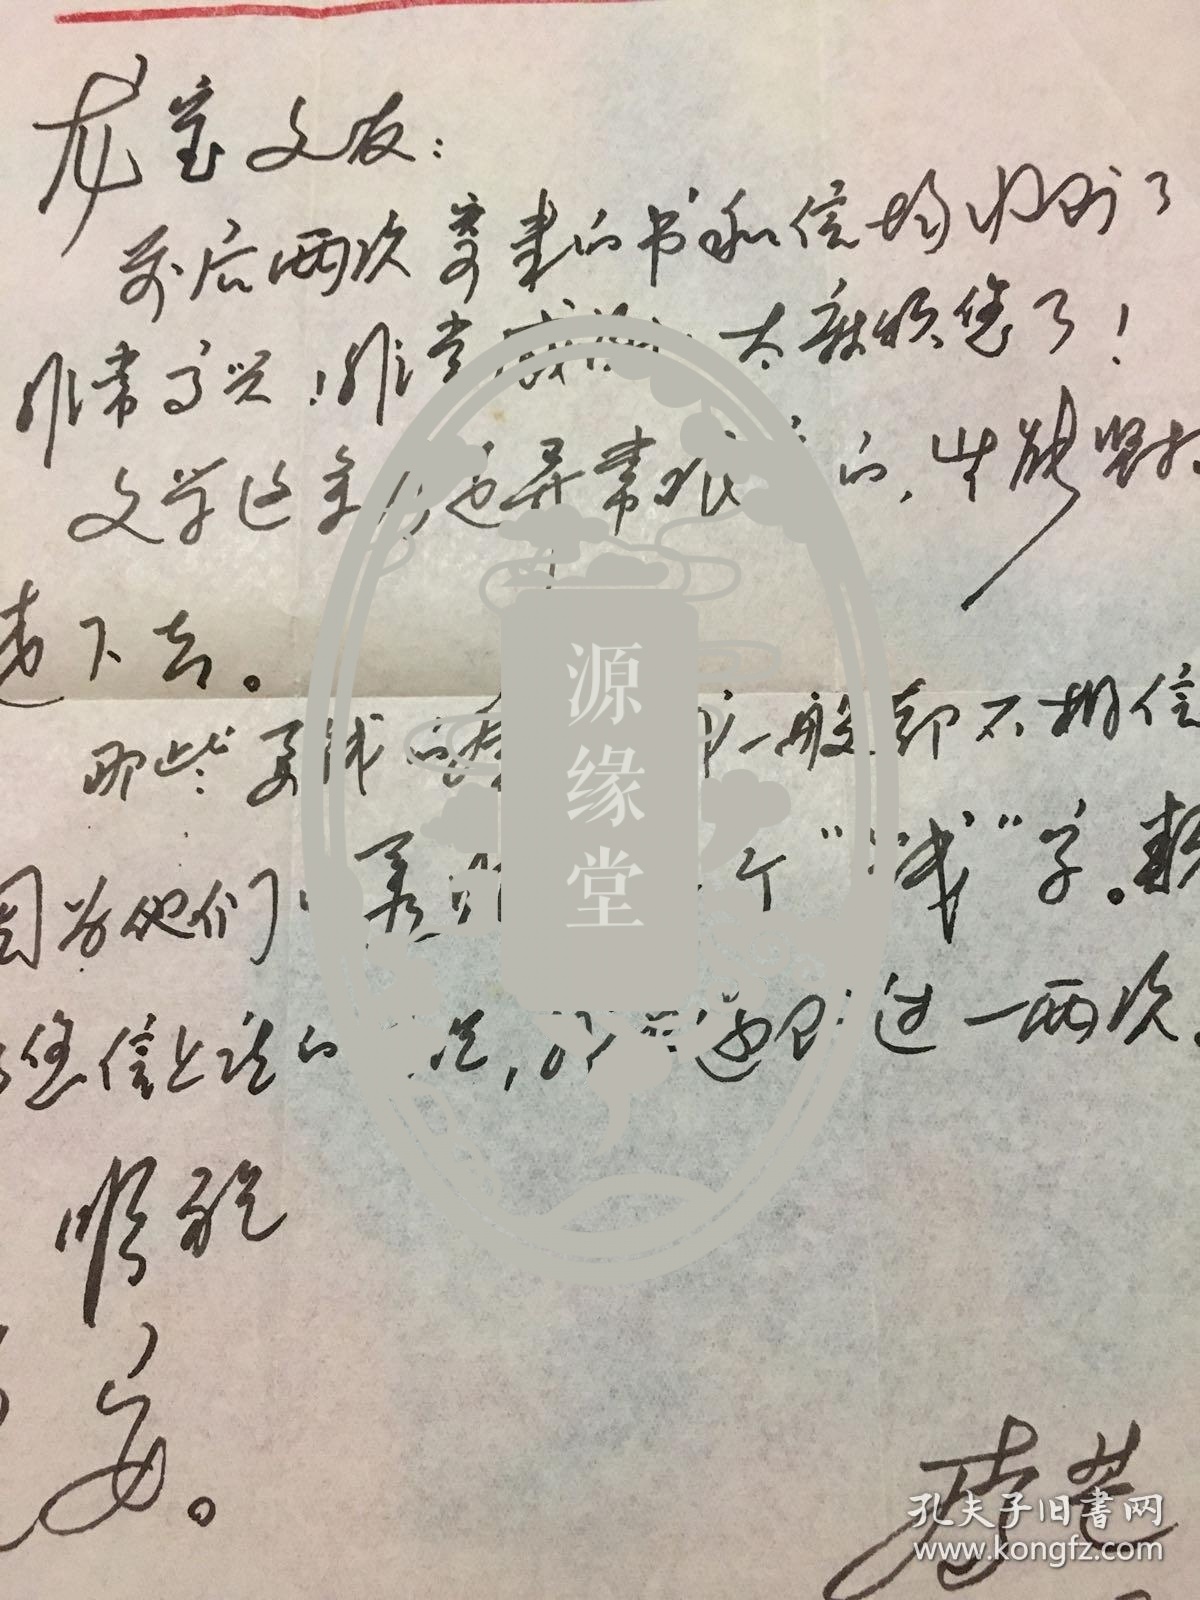 龙宝文友：
前后两次寄来的书和信均收到了
非常高兴！非常感谢！太麻烦您了！
文学这条 也异常 的，
走下去。
那些要钱的 一般都不相信
因为他们 个“钱”字。
您信上说的 ，我 遇到过一两次。
顺祝
安。
源缘堂
孔夫子旧书网
www.kongfz.com